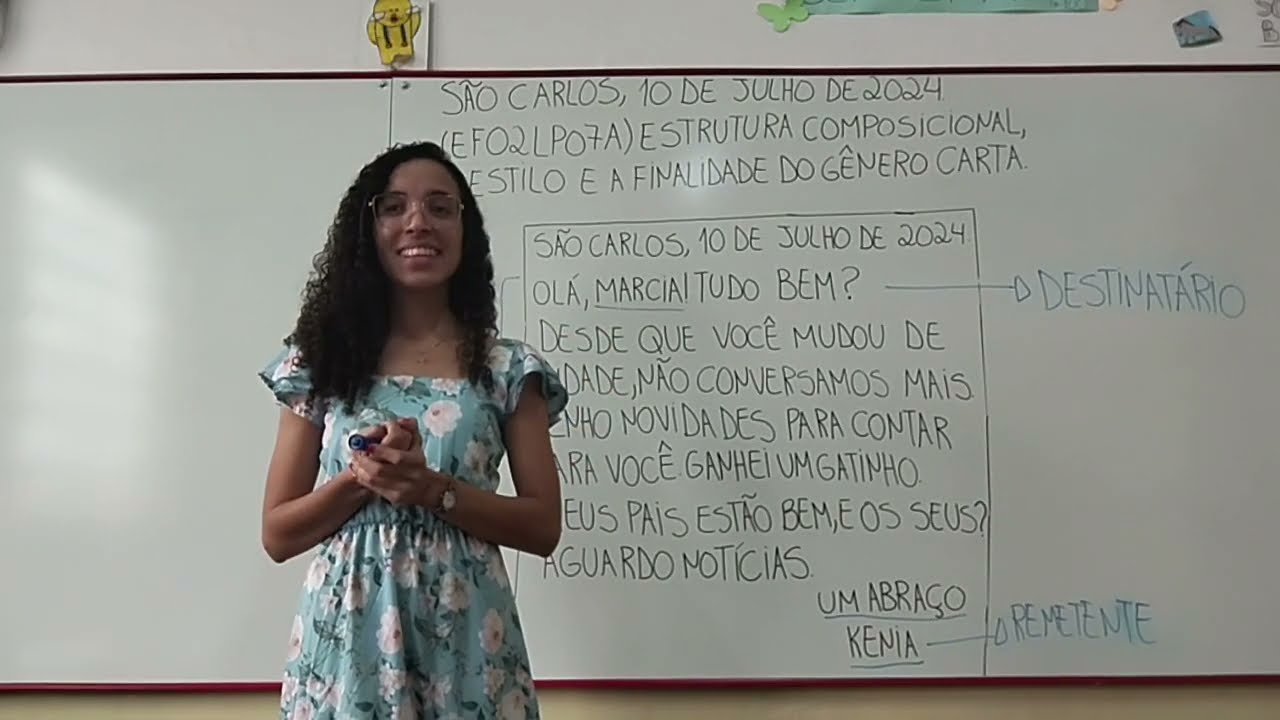 SÃO CARLOS, 10 DE JULHO DE 2024.
(EF02LP07A) ESTRUTURA COMPOSICIONAL,
ESTILO E A FINALIDADE DO GÊNERO CARTA.
SÃO CARLOS, 10 DE JULHO DE 2024.
OLÁ, MARCIA! TUDO BEM?
DESTINATÁRIO
DESDE QUE VOCÊ MUDOU DE
IDADE, NÃO CONVERSAMOS MAIS.
ENHO NOVIDADES PARA CONTAR
ARA VOCÊ. GANHEI UM GATINHO.
EUS PAIS ESTÃO BEM, E OS SEUS?
AGUARDO NOTÍCIAS.
UM ABRAÇO
KENIA
REMETENTE